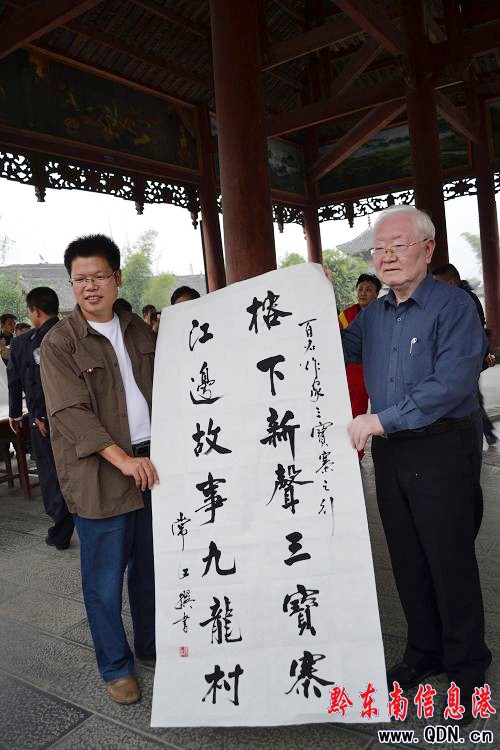 百名作家三寶寨之行
榕下新聲三寶寨
江邊故事九龍村
常江撰書
黔东南信息港
www.QDN.cn